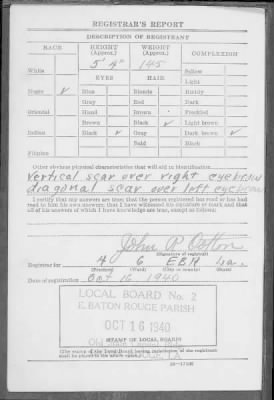 REGISTRAR'S REPORT
DESCRIPTION OF REGISTRANT
RACE HEIGHT (Approx.) WEIGHT (Approx.) COMPLEXION
5' 145
White Sallow
EYES HAIR Light
Negro ✓ Blue Blonde Ruddy
Gray Red Dark
Oriental Hazel Brown Freckled
Brown Black ✓ Light brown
Indian Black ✓ Gray Dark brown ✓
Bald Black
Filipino
Other obvious physical characteristics that will aid in identification
Vertical scar over right eyebrow
diagonal scar over left eyebrow
I certify that my answers are true; that the person registered has read or has had
read to him his own answers; that I have witnessed his signature or mark and that
all of his answers of which I have knowledge are true, except as follows:
John P.
(Signature of registrar)
Registrar for 4 6 EBR La.
(Precinct) (Ward) (City or county) (State)
Date of registration Oct 16 1940
LOCAL BOARD No. 2
E. BATON ROUGE PARISH
OCT 16 1940
STAMP OF LOCAL BOARD
(The stamp of the Local Board having jurisdiction of the registrant
shall be placed in the above space.)